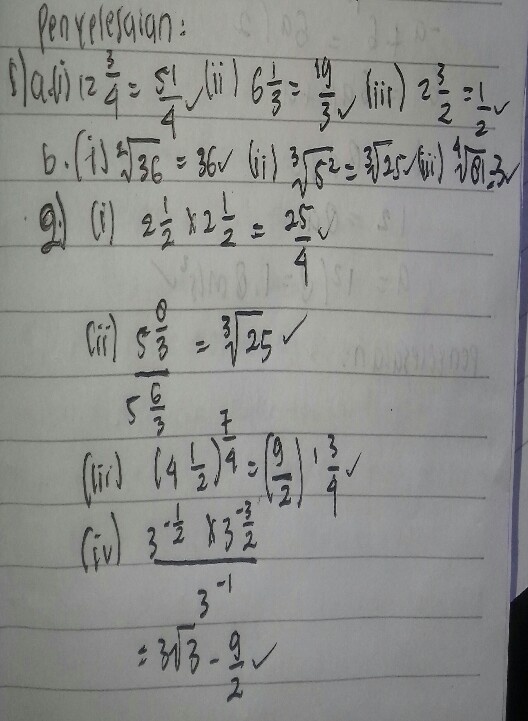 Penyelesaian:
8) a.(i) 12 3/4 = 51/4 ✓ (ii) 6 1/3 = 19/3 ✓ (iii) 2 3/2 = 1/2 ✓
b. (i) ²√36 = 36 ✓ (ii) ³√5² = ³√25 ✓ (iii) ⁴√81 = 3 ✓
9.) (i) 2 1/2 × 2 1/2 = 25/4 ✓
(ii) 5 8/3 = ³√25 ✓
5 6/3
(iii) (4 1/2)^7/4 = (9/2) 1 3/4 ✓
(iv) 3^-1/2 × 3^-3/2
3^-1
= 3√3 - 9/2 ✓